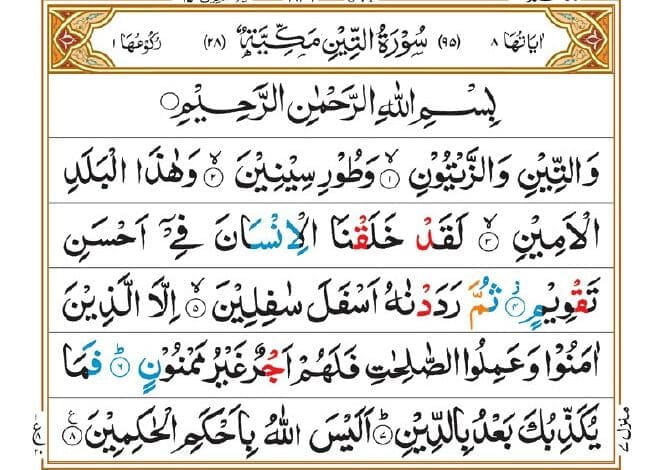 اٰيَاتُهَا ٨ (٩٥) سُوْرَةُ التِّيْنِ مَكِّيَّةٌ (٢٨) رُكُوْعُهَا ١
بِسْمِ اللّٰهِ الرَّحْمٰنِ الرَّحِيْمِ
وَالتِّيْنِ وَالزَّيْتُوْنِ ۙ﴿١﴾ وَطُوْرِ سِيْنِيْنَ ۙ﴿٢﴾ وَهٰذَا الْبَلَدِ
الْاَمِيْنِ ۙ﴿٣﴾ لَقَدْ خَلَقْنَا الْاِنْسَانَ فِيْٓ اَحْسَنِ
تَقْوِيْمٍ ۡ﴿٤﴾ ثُمَّ رَدَدْنٰهُ اَسْفَلَ سٰفِلِيْنَ ۙ﴿٥﴾ اِلَّا الَّذِيْنَ
اٰمَنُوْا وَعَمِلُوا الصّٰلِحٰتِ فَلَهُمْ اَجْرٌ غَيْرُ مَمْنُوْنٍ ؕ﴿٦﴾ فَمَا
يُكَذِّبُكَ بَعْدُ بِالدِّيْنِ ؕ﴿٧﴾ اَلَيْسَ اللّٰهُ بِاَحْكَمِ الْحٰكِمِيْنَ ﴿٨﴾ ع
منزل ٧